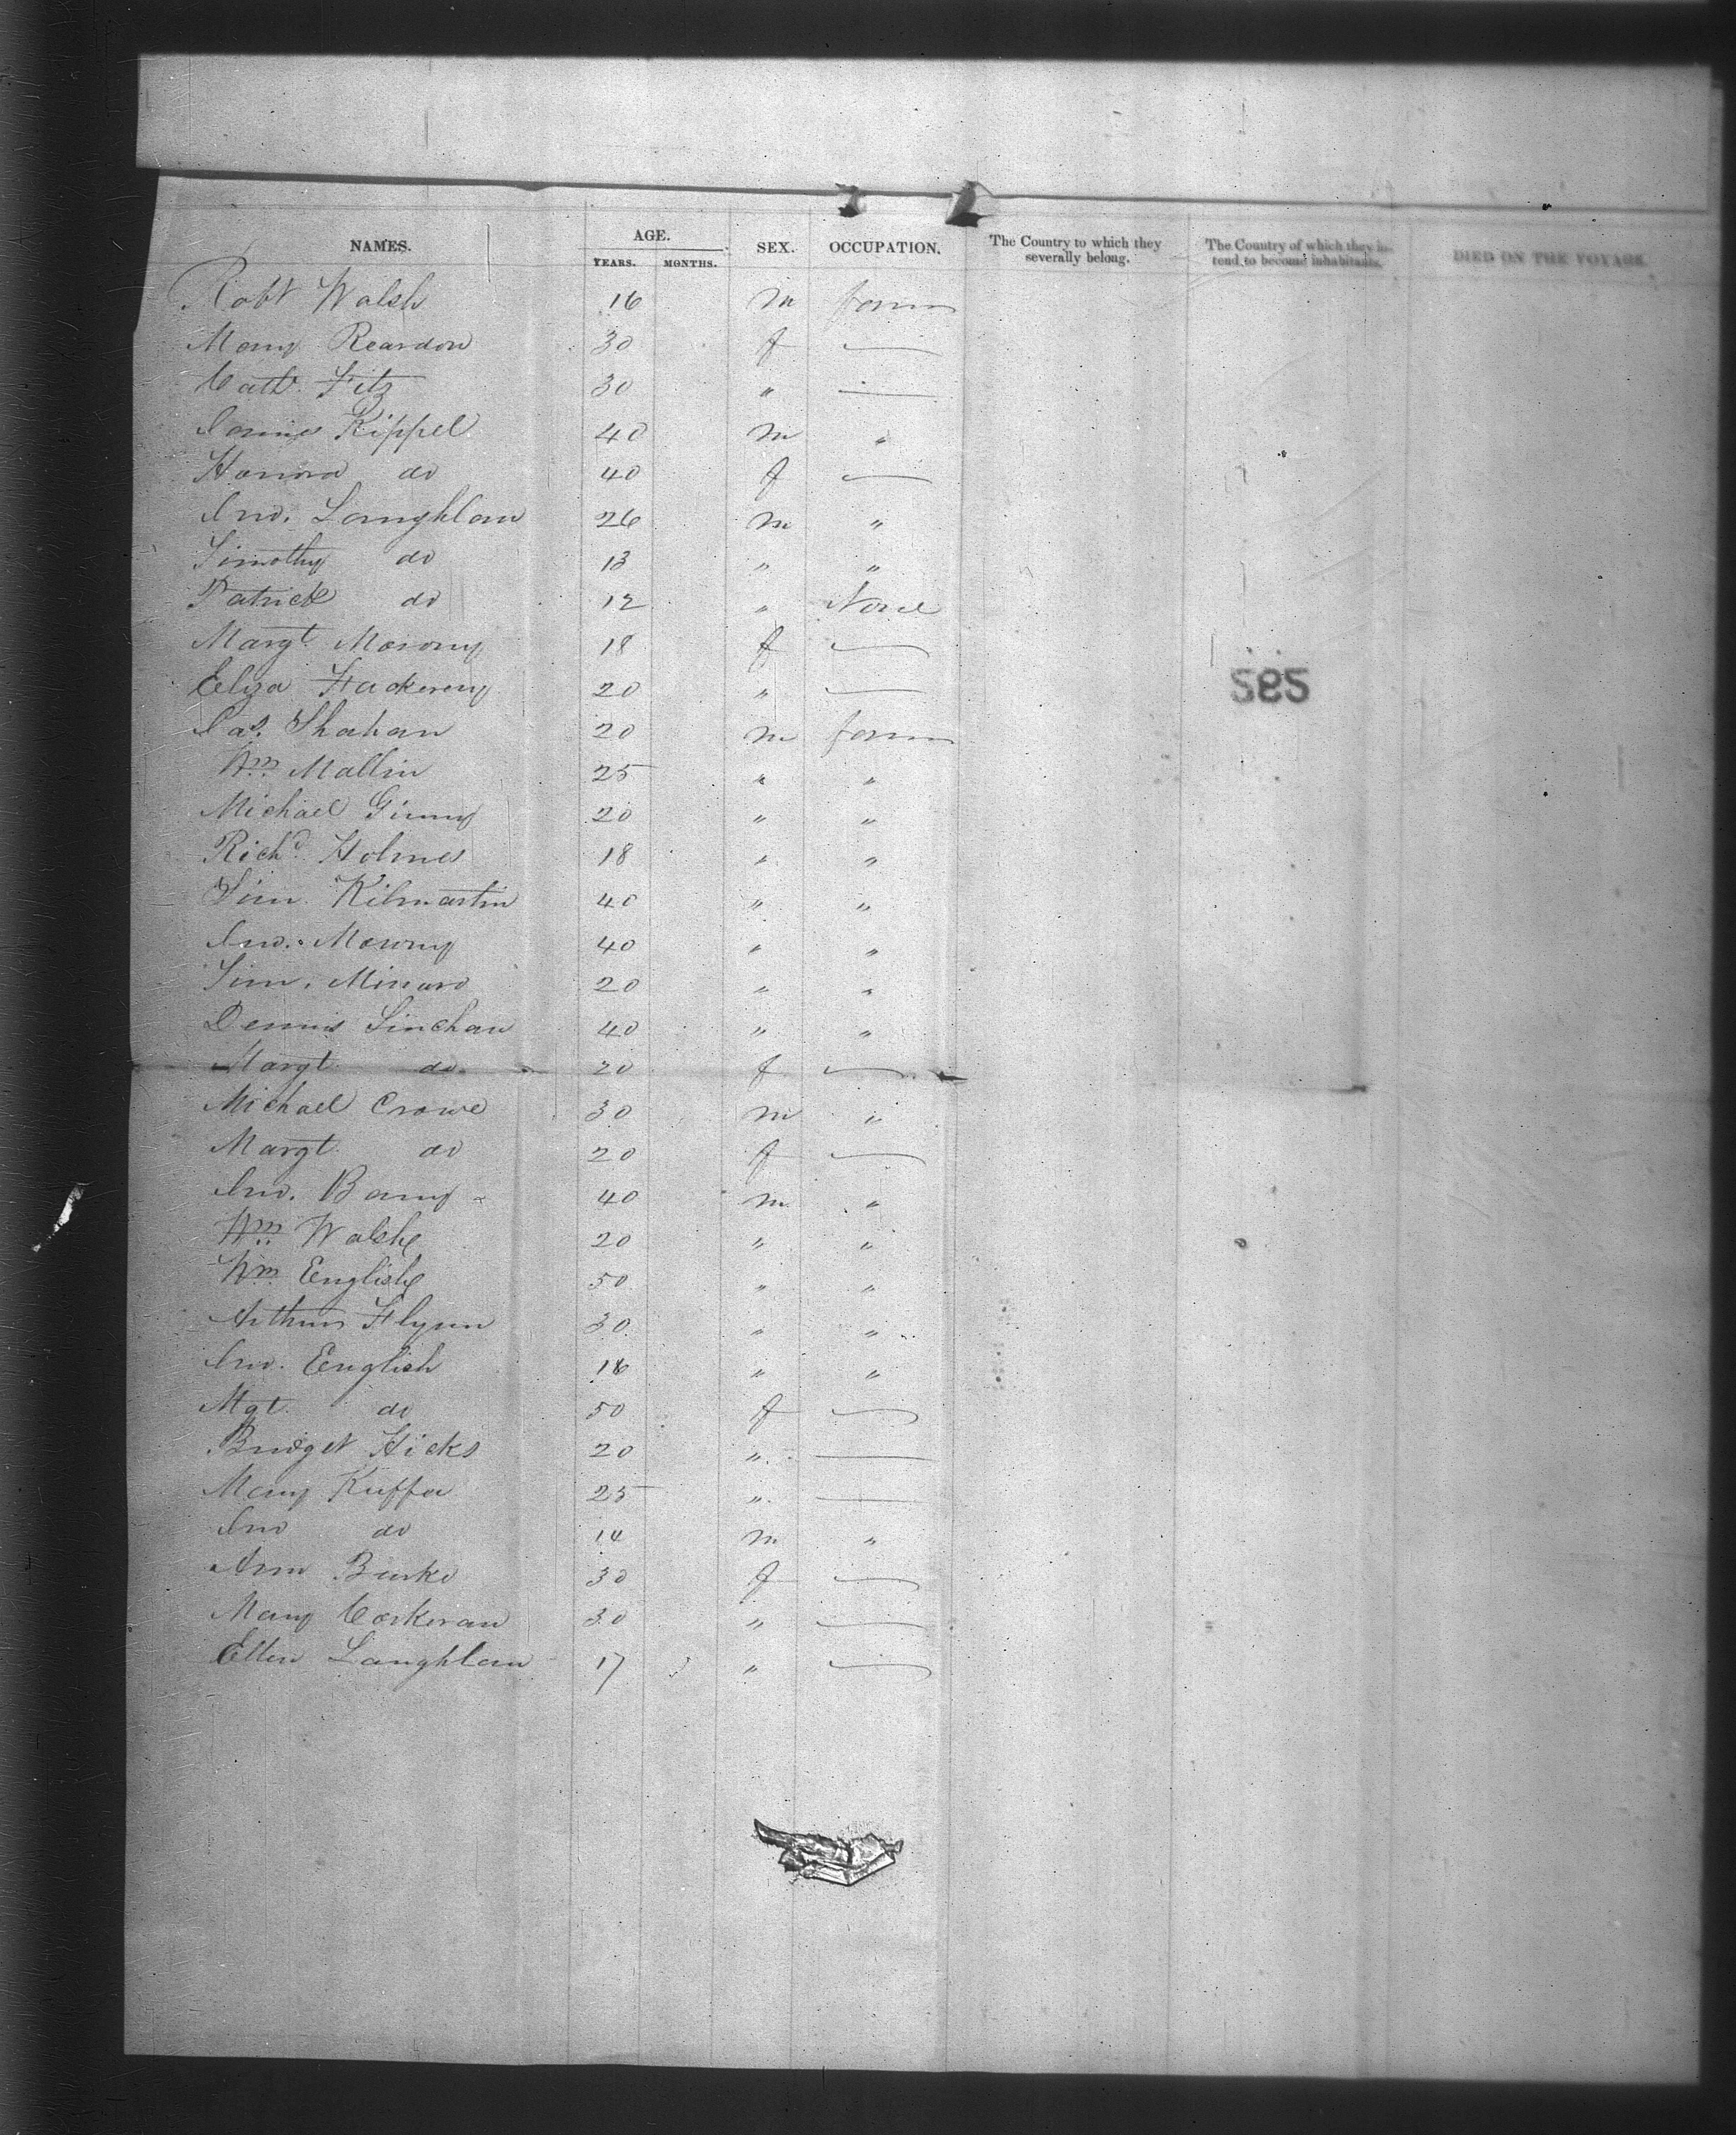 NAMES. AGE. SEX. OCCUPATION. The Country to which they severally belong. The Country of which they intend to become inhabitants. DIED ON THE VOYAGE.
YEARS. MONTHS.
Robt Walsh 16 m farm
Mary Reardon 30 f —
Cath. Fitz 30 " —
Kippel 40 m "
Honora do 40 f —
Jno. Laughlan 26 m "
Timothy do 13 " "
Patrick do 12 " None
Margt. Morony 18 f —
Eliza 20 " —
Jas. Shahan 20 m farm
Wm. Mallin 25 " "
Michael 20 " "
Richd. Holmes 18 " "
Tim. Kilmartin 40 " "
Jno. 40 " "
Tim. 20 " "
Dennis Linehan 40 " "
Margt do 20 f —
Michael Crowe 30 m "
Margt do 20 f —
Jno. Barry 40 m "
Wm. Walsh 20 " "
Wm. English 50 " "
Arthur Flynn 30 " "
Jno. English 16 " "
Mgt. do 50 f —
Bridget Hicks 20 " —
Mary Kuffa 25 " —
Jno do 14 m "
Ann Burke 30 f —
Mary Corkeran 30 " —
Ellen Laughlan 17 " —